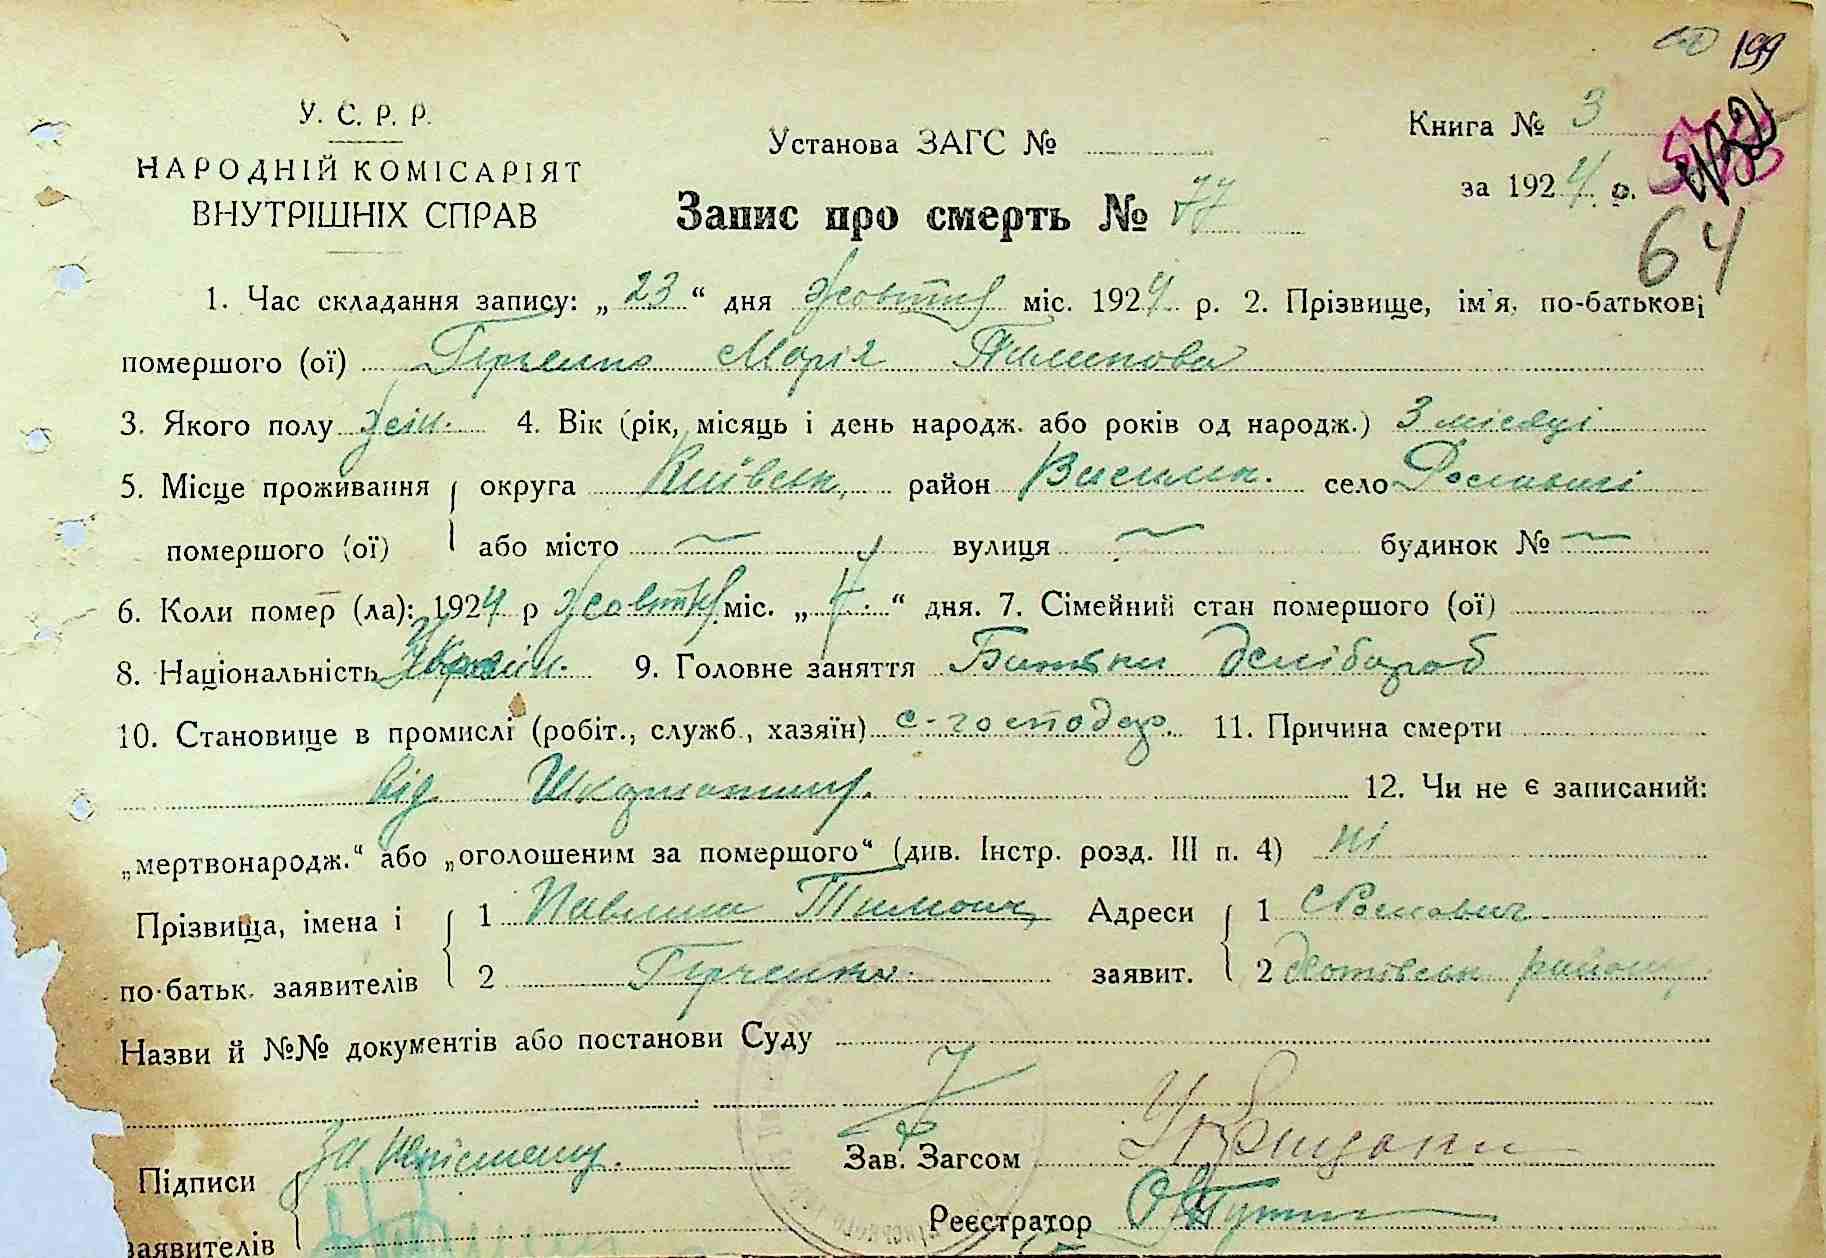 199
У. С. Р. Р.
НАРОДНІЙ КОМІСАРІЯТ
ВНУТРІШНІХ СПРАВ
Установа ЗАГС №
Книга № 3
за 1924 р.
64
Запис про смерть № 77
1. Час складання запису: „ 23 “ дня жовтня міс. 1924 р. 2. Прізвище, ім'я, по-батькові
помершого (ої) Марія Пилипова
3. Якого полу жін. 4. Вік (рік, місяць і день народж. або років од народж.) 3 місяці
5. Місце проживання округа Київськ. район Васильк. село
помершого (ої) або місто ~ вулиця ~ будинок № ~
6. Коли помер (ла): 1924 р жовтня міс. „ “ дня. 7. Сімейний стан помершого (ої)
8. Національність Україн. 9. Головне заняття Батьки хлібороб
10. Становище в промислі (робіт., служб., хазяїн) с-господар. 11. Причина смерти
від 12. Чи не є записаний:
„мертвонародж.“ або „оголошеним за помершого“ (див. Інстр. розд. III п. 4) ні
Прізвища, імена і 1 Адреси 1
по-батьк. заявителів 2 заявит. 2 району
Назви й №№ документів або постанови Суду
Підписи За Зав. Загсом
заявителів Реєстратор